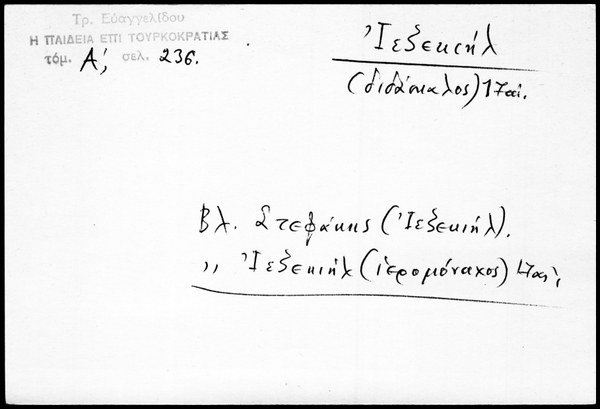 Τρ. Εὐαγγελίδου
Η ΠΑΙΔΕΙΑ ΕΠΙ ΤΟΥΡΚΟΚΡΑΤΙΑΣ
τόμ. Α', σελ. 236.
Ἰεζεκιήλ
(διδάσκαλος) 17 αἰ.
Βλ. Στεφάκης (Ἰεζεκιήλ).
,, Ἰεζεκιήλ (ἱερομόναχος) 17 αἰ.